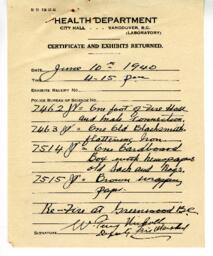 HEALTH DEPARTMENT
CITY HALL VANCOUVER, B.C.
(LABORATORY)
CERTIFICATE AND EXHIBITS RETURNED.
DATE June 10th 1940
TIME 4-15 pm
EXHIBITS RECEIPT NO.
POLICE BUREAU OF SCIENCE NO.
7462 One foot of Fire Hose
and male Connection.
7463 One Old Blacksmith
flattening Iron.
7514 One Cardboard
Box with newspapers
old Sack and Rags.
7515 Brown wrapping
paper.
Re-Fire at Greenwood B.C.
SIGNATURE
Deputy Fire Marshal